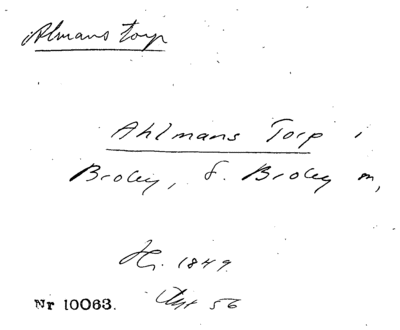 Almans torp
Ahlmans Torp i
Broby, f. Broby m,
Hf. 1849.
56
Nr 10063.